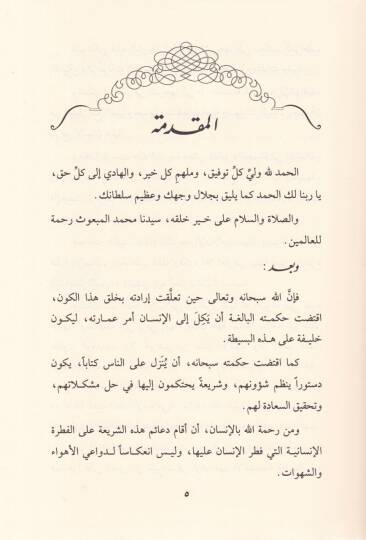 المقدمة
الحمد لله وليِّ كلِّ توفيق، وملهم كل خير، والهادي إلى كلِّ حق،
يا ربنا لك الحمد كما يليق بجلال وجهك وعظيم سلطانك.
والصلاة والسلام على خير خلقه، سيدنا محمد المبعوث رحمة
للعالمين.
وبعد :
فإنَّ الله سبحانه وتعالى حين تعلَّقت إرادته بخلق هذا الكون،
اقتضت حكمته البالغة أن يَكِلَ إلى الإنسان أمر عمارته، ليكون
خليفة على هذه البسيطة.
كما اقتضت حكمته سبحانه، أن يُنَزل على الناس كتاباً، يكون
دستوراً ينظم شؤونهم، وشريعةً يحتكمون إليها في حل مشكلاتهم،
وتحقيق السعادة لهم.
ومن رحمة الله بالإنسان، أن أقام دعائم هذه الشريعة على الفطرة
الإنسانية التي فطر الإنسان عليها، وليس انعكاساً لدواعي الأهواء
والشهوات.
٥